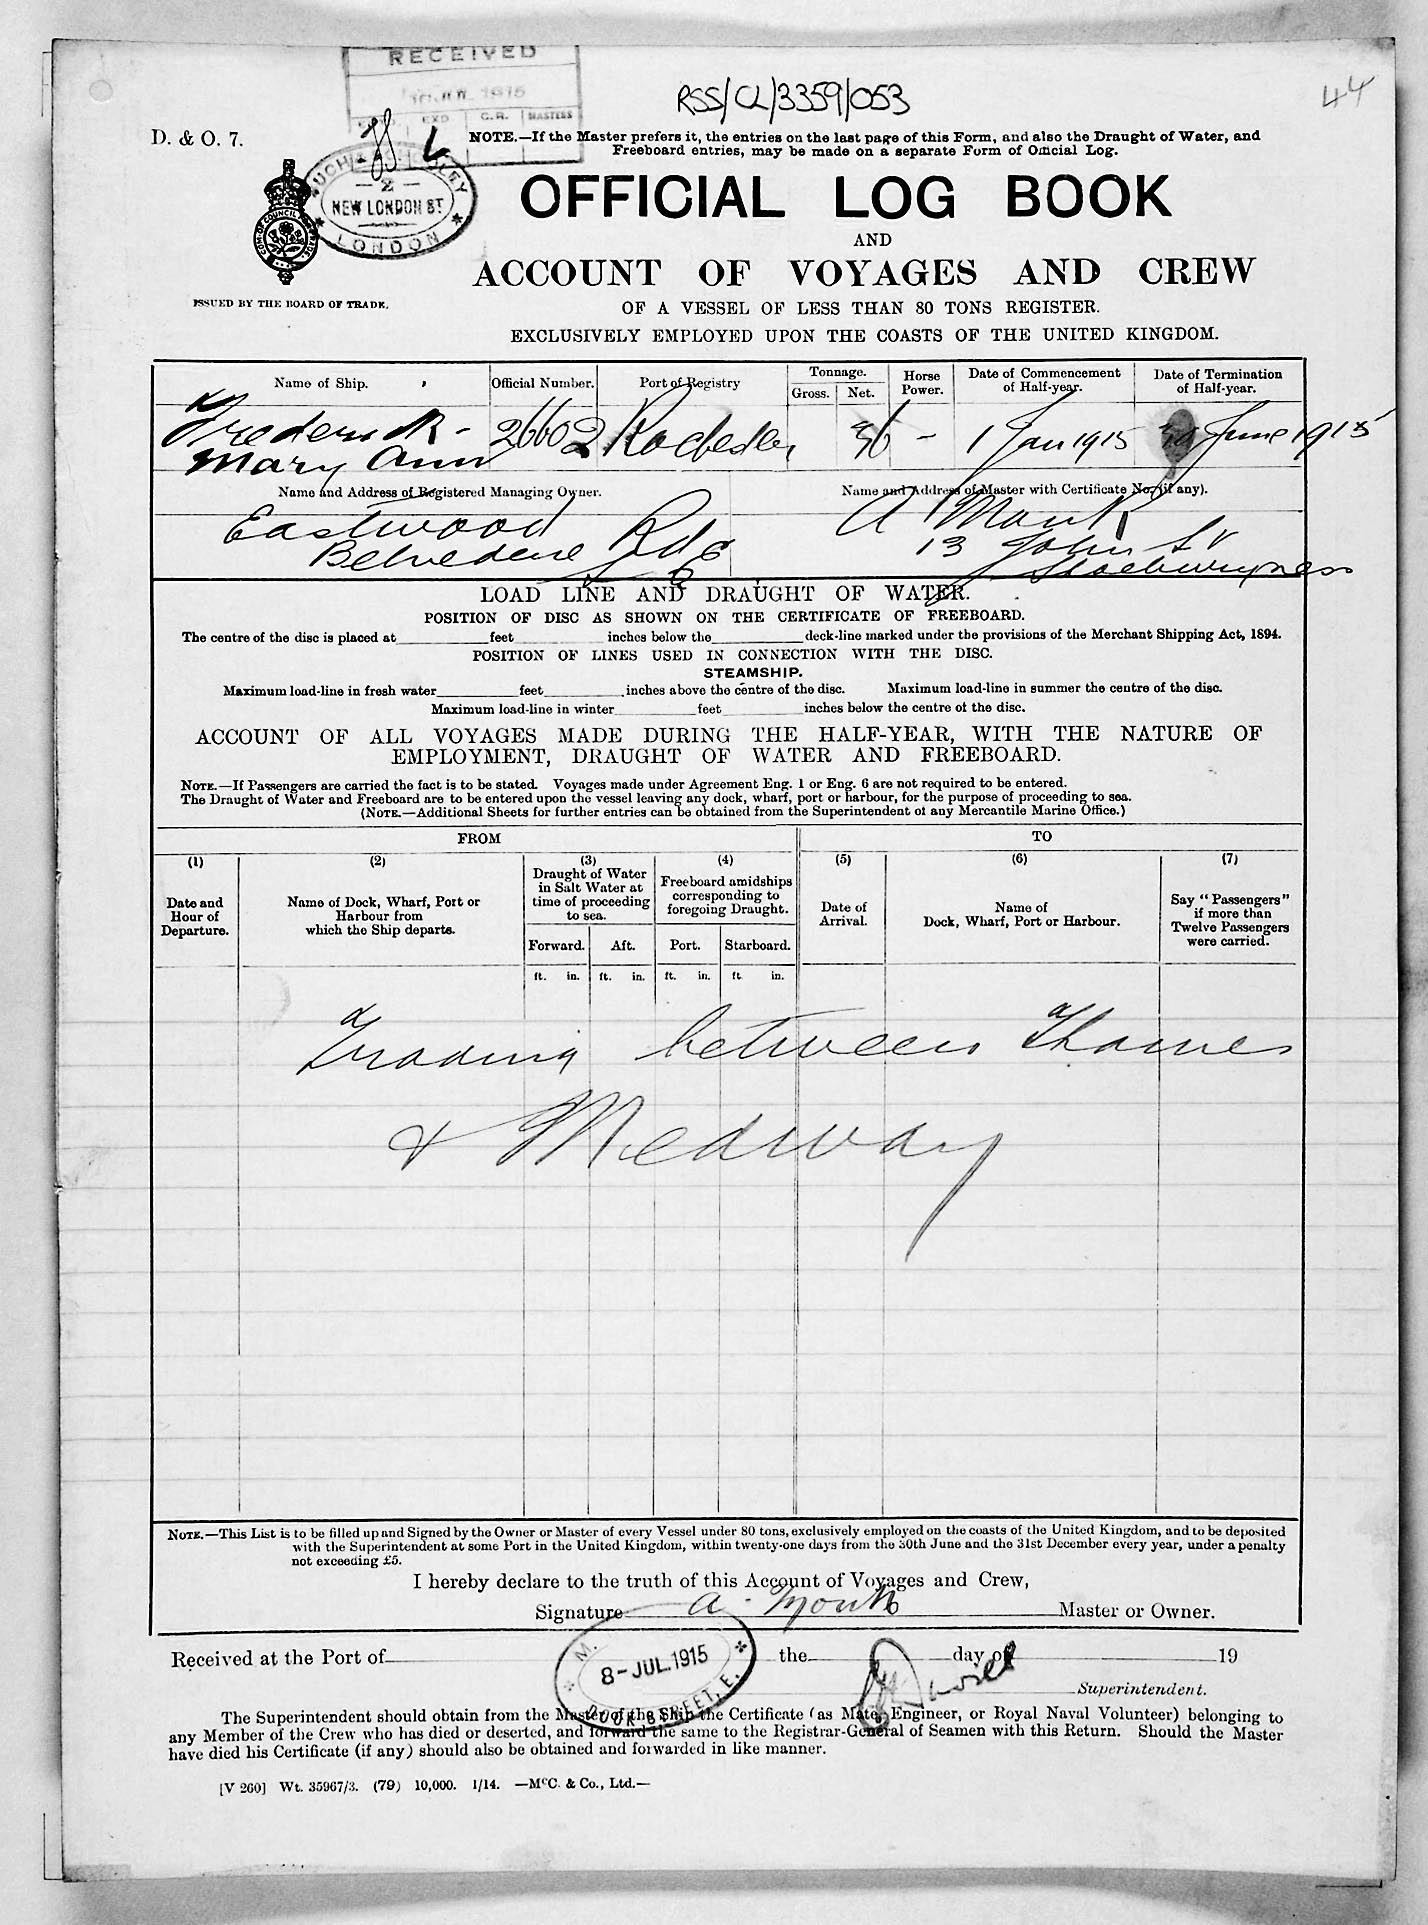 RECEIVED
1915
EXD C.R. MASTERS
RSS/CL/3359/053
44
D. & O. 7.
NOTE.—If the Master prefers it, the entries on the last page of this Form, and also the Draught of Water, and
Freeboard entries, may be made on a separate Form of Official Log.
2
NEW LONDON ST
LONDON
OFFICIAL LOG BOOK
AND
ACCOUNT OF VOYAGES AND CREW
ISSUED BY THE BOARD OF TRADE.
OF A VESSEL OF LESS THAN 80 TONS REGISTER.
EXCLUSIVELY EMPLOYED UPON THE COASTS OF THE UNITED KINGDOM.
Name of Ship. Official Number. Port of Registry Tonnage. Horse Power. Date of Commencement of Half-year. Date of Termination of Half-year.
Gross. Net.
Frederick - 26602 Rochester 36 - 1 Jan 1915 30 June 1915
Mary Ann
Name and Address of Registered Managing Owner. Name and Address of Master with Certificate No. (if any).
Eastwood A Monk
Belvedere Rd 13 John St
Shoeburyness
LOAD LINE AND DRAUGHT OF WATER.
POSITION OF DISC AS SHOWN ON THE CERTIFICATE OF FREEBOARD.
The centre of the disc is placed at feet inches below the deck-line marked under the provisions of the Merchant Shipping Act, 1894.
POSITION OF LINES USED IN CONNECTION WITH THE DISC.
STEAMSHIP.
Maximum load-line in fresh water feet inches above the centre of the disc. Maximum load-line in summer the centre of the disc.
Maximum load-line in winter feet inches below the centre of the disc.
ACCOUNT OF ALL VOYAGES MADE DURING THE HALF-YEAR, WITH THE NATURE OF
EMPLOYMENT, DRAUGHT OF WATER AND FREEBOARD.
NOTE.—If Passengers are carried the fact is to be stated. Voyages made under Agreement Eng. 1 or Eng. 6 are not required to be entered.
The Draught of Water and Freeboard are to be entered upon the vessel leaving any dock, wharf, port or harbour, for the purpose of proceeding to sea.
(NOTE.—Additional Sheets for further entries can be obtained from the Superintendent of any Mercantile Marine Office.)
FROM TO
(1) (2) (3) (4) (5) (6) (7)
Date and Hour of Departure. Name of Dock, Wharf, Port or Harbour from which the Ship departs. Draught of Water in Salt Water at time of proceeding to sea. Freeboard amidships corresponding to foregoing Draught. Date of Arrival. Name of Dock, Wharf, Port or Harbour. Say "Passengers" if more than Twelve Passengers were carried.
Forward. Aft. Port. Starboard.
ft. in. ft. in. ft. in. ft. in.
Trading between Thames
& Medway
NOTE.—This List is to be filled up and Signed by the Owner or Master of every Vessel under 80 tons, exclusively employed on the coasts of the United Kingdom, and to be deposited
with the Superintendent at some Port in the United Kingdom, within twenty-one days from the 30th June and the 31st December every year, under a penalty
not exceeding £5.
I hereby declare to the truth of this Account of Voyages and Crew,
Signature A. Monk Master or Owner.
Received at the Port of the day of 19
8-JUL.1915
Superintendent.
The Superintendent should obtain from the Master of the Ship the Certificate (as Mate, Engineer, or Royal Naval Volunteer) belonging to
any Member of the Crew who has died or deserted, and forward the same to the Registrar-General of Seamen with this Return. Should the Master
have died his Certificate (if any) should also be obtained and forwarded in like manner.
[V 260] Wt. 35967/3. (79) 10,000. 1/14. —McC. & Co., Ltd.—